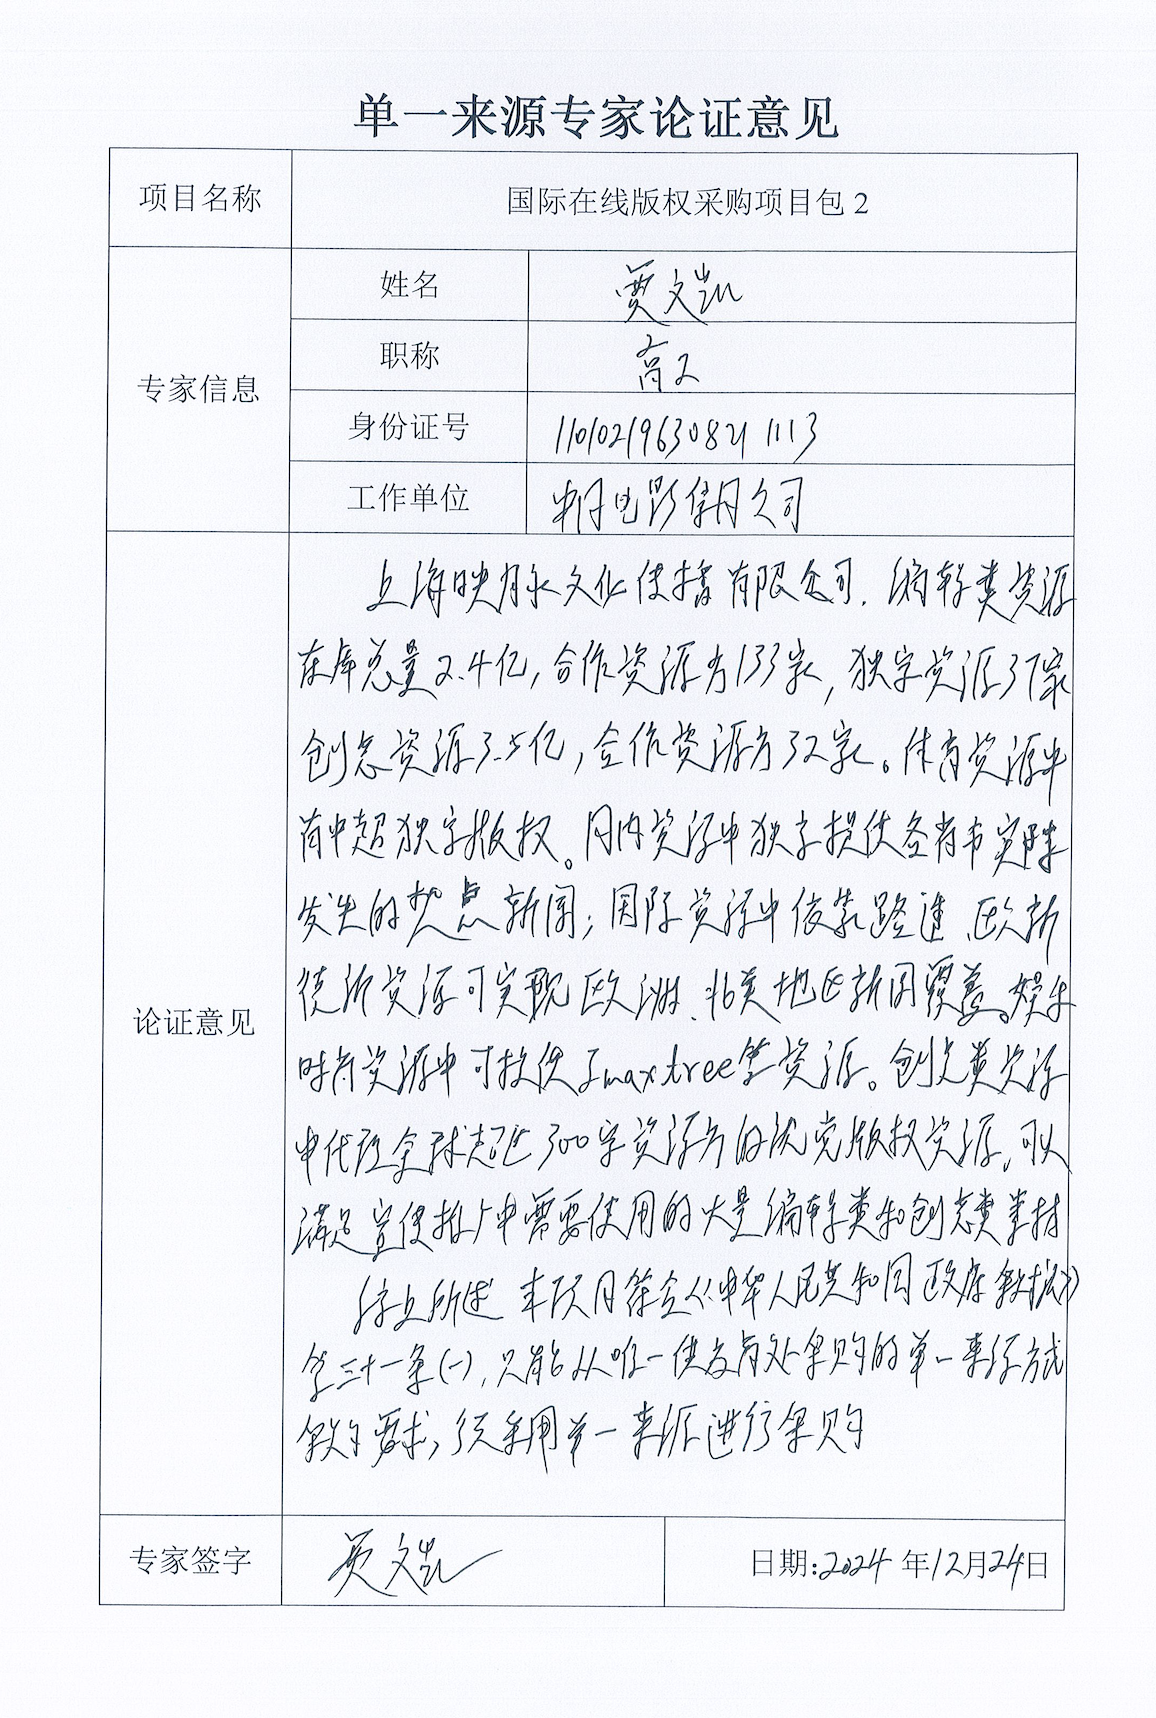 单一来源专家论证意见
项目名称
国际在线版权采购项目包 2
专家信息
姓名
贾文凯
职称
高工
身份证号
110102196308211113
工作单位
中国电影集团公司
论证意见
上海映脉文化传播有限公司.编辑类资源
在库总量2.4亿,合作资源方133家,独家资源37家
创意资源3.5亿,合作资源方32家。体育资源中
有中超独家版权。国内资源中独家提供各省市实时
发生的热点新闻;国际资源中依靠路透、欧新
德新资源可实现欧洲、北美地区新闻覆盖。娱乐
时尚资源中可提供Imaxtree等资源。创意类资源
中代理全球超过300家资源方的优秀版权资源,可以
满足宣传推广中需要使用的大量编辑类和创意类素材
综上所述 本项目符合《中华人民共和国政府采购法》
第三十一条(一),只能从唯一供应商处采购的单一来源方式
采购要求,须采用单一来源进行采购
专家签字
贾文凯
日期:2024年12月24日